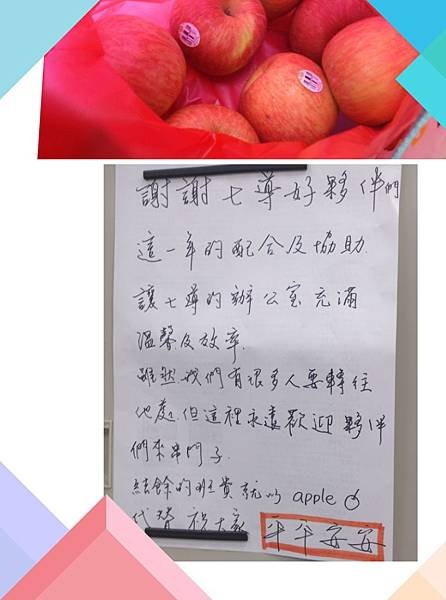 謝謝七導好夥伴們
這一年的配合及協助.
讓七導的辦公室充滿
溫馨及效率.
雖然我們有很多人要轉往
他處.但這裡永遠歡迎夥伴
們來串門子.
結餘的班費就以 apple
代替 祝大家 平平安安